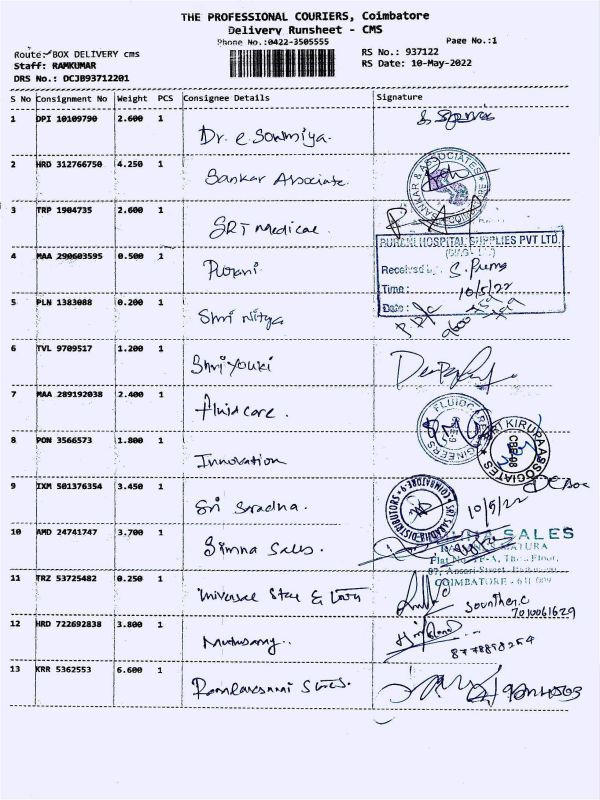 THE PROFESSIONAL COURIERS, Coimbatore
Delivery Runsheet - CMS
Phone No.:0422-3505555
Page No.:1
Route: BOX DELIVERY cms
Staff: RAMKUMAR
DRS No.: DCJB93712201
RS No.: 937122
RS Date: 10-May-2022
S No Consignment No Weight PCS Consignee Details Signature
1 DPI 10109790 2.600 1 Dr. e. Sowmiya.
2 HRD 312766750 4.250 1 Sankar Associate.
SANKAR & ASSOCIATES
COIMBATORE
3 TRP 1904735 2.600 1 SRT Medical
4 MAA 290603595 0.500 1 Purani
HOSPITAL SUPPLIES PVT LTD.
Received by. S. Prema
Time: 10/5/22
Date:
5 PLN 1383088 0.200 1 Shri Nitya
6 TVL 9709517 1.200 1 Shri youki
7 MAA 289192038 2.400 1 Fluid care.
8 PON 3566573 1.800 1 Innovation
SRI KIRUPA ASSOCIATES
CBE-08
9 IXM 501376354 3.450 1 Sri Saradha.
SRI SARADHA DISTRIBUTORS
COIMBATORE-9
10/5/22
10 AMD 24741747 3.700 1 Simna Sales.
SALES
COIMBATORE - 641 009
11 TRZ 53725482 0.250 1 Universal Star &
7010061629
12 HRD 722692838 3.800 1 Muthusamy..
13 KRR 5362553 6.600 1 Ramalakshmi Stores.